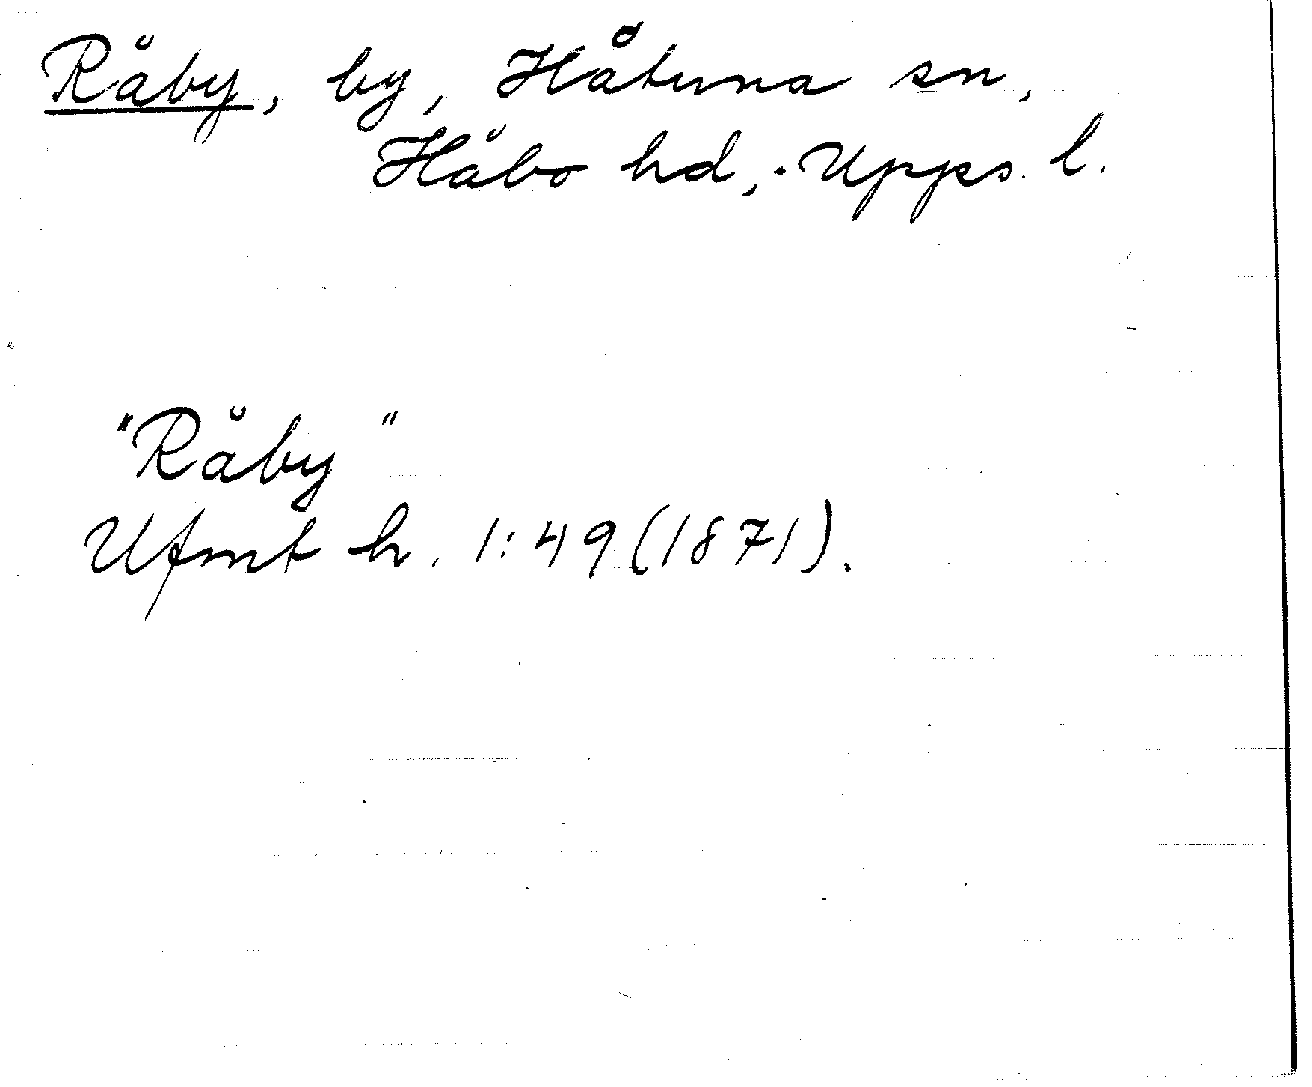 Råby, by, Håtuna sn,
Håbo hd, Upps. l.
"Råby"
Ufmt h. 1:49 (1871).